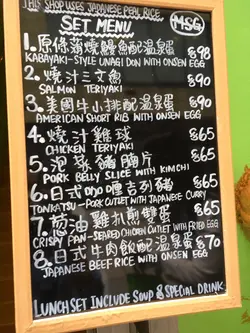 THIS SHOP USES JAPANESE PEAL RICE
SET MENU
MSG
1. 原條蒲燒鰻魚配溫泉蛋 $98
KABAYAKI-STYLE UNAGI DON WITH ONSEN EGG
2. 燒汁三文魚 $90
SALMON TERIYAKI
3. 美國牛小排配溫泉蛋 $90
AMERICAN SHORT RIB WITH ONSEN EGG
4. 燒汁雞球 $65
CHICKEN TERIYAKI
5. 泡菜豬腩片 $65
PORK BELLY SLICE WITH KIMCHI
6. 日式吉列豬 $65
TONKATSU-PORK CUTLET WITH JAPANESE CURRY
7. 葱油雞扒煎雙蛋 $65
CRISPY PAN-SEARED CHICKEN CUTLET WITH FRIED EGG
8. 日式牛肉飯配溫泉蛋 $70
JAPANESE BEEF RICE WITH ONSEN EGG
LUNCH SET INCLUDE SOUP & SPECIAL DRINK